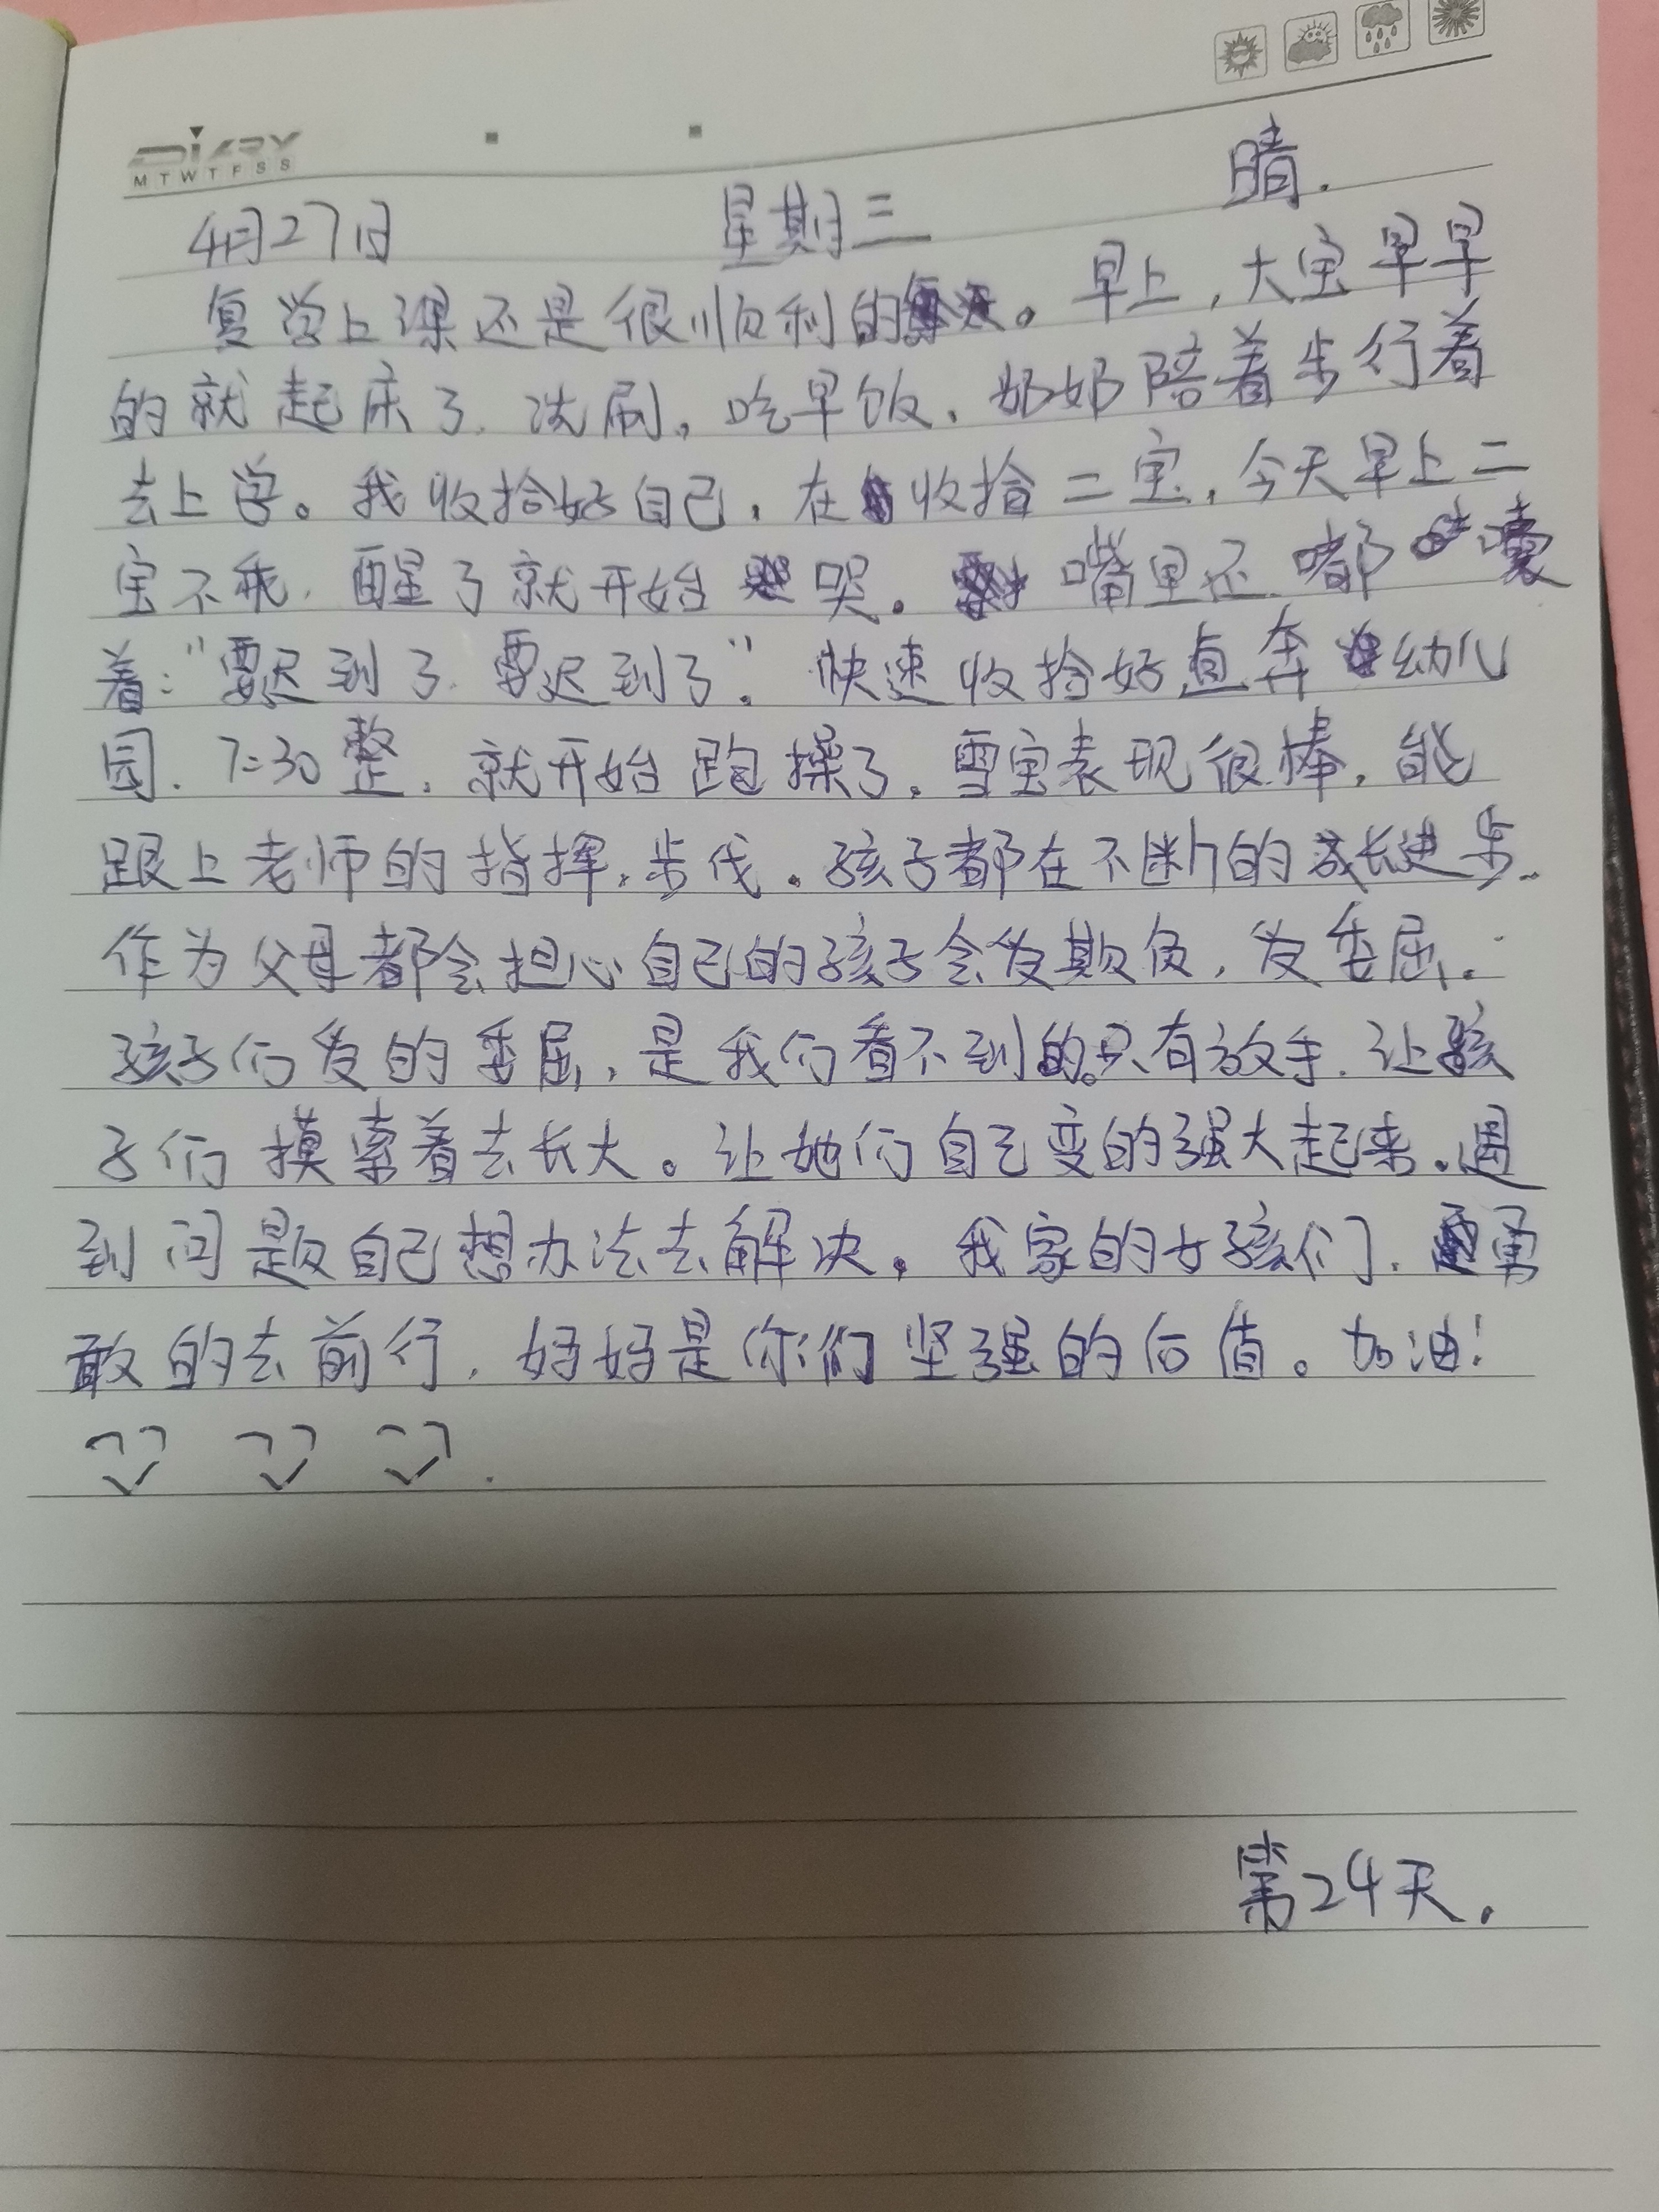 DIARY
MTWTFSS
晴.
4月27日 星期三
复学上课还是很顺利的。早上,大宝早早
的就起床了.洗刷,吃早饭,奶奶陪着步行着
去上学。我收拾好自己,在收拾二宝,今天早上二
宝不乖,醒了就开始哭。嘴里还嘟囔
着:"要迟到了.要迟到了"。快速收拾好直奔幼儿
园.7:30整,就开始跑操了,雪宝表现很棒,能
跟上老师的指挥,步伐。孩子都在不断的成长进步..
作为父母都会担心自己的孩子会受欺负,受委屈.
孩子们受的委屈,是我们看不到的。只有放手.让孩
子们摸索着去长大。让她们自己变的强大起来.遇
到问题自己想办法去解决。我家的女孩们,勇
敢的去前行,妈妈是你们坚强的后值。加油!
第24天.